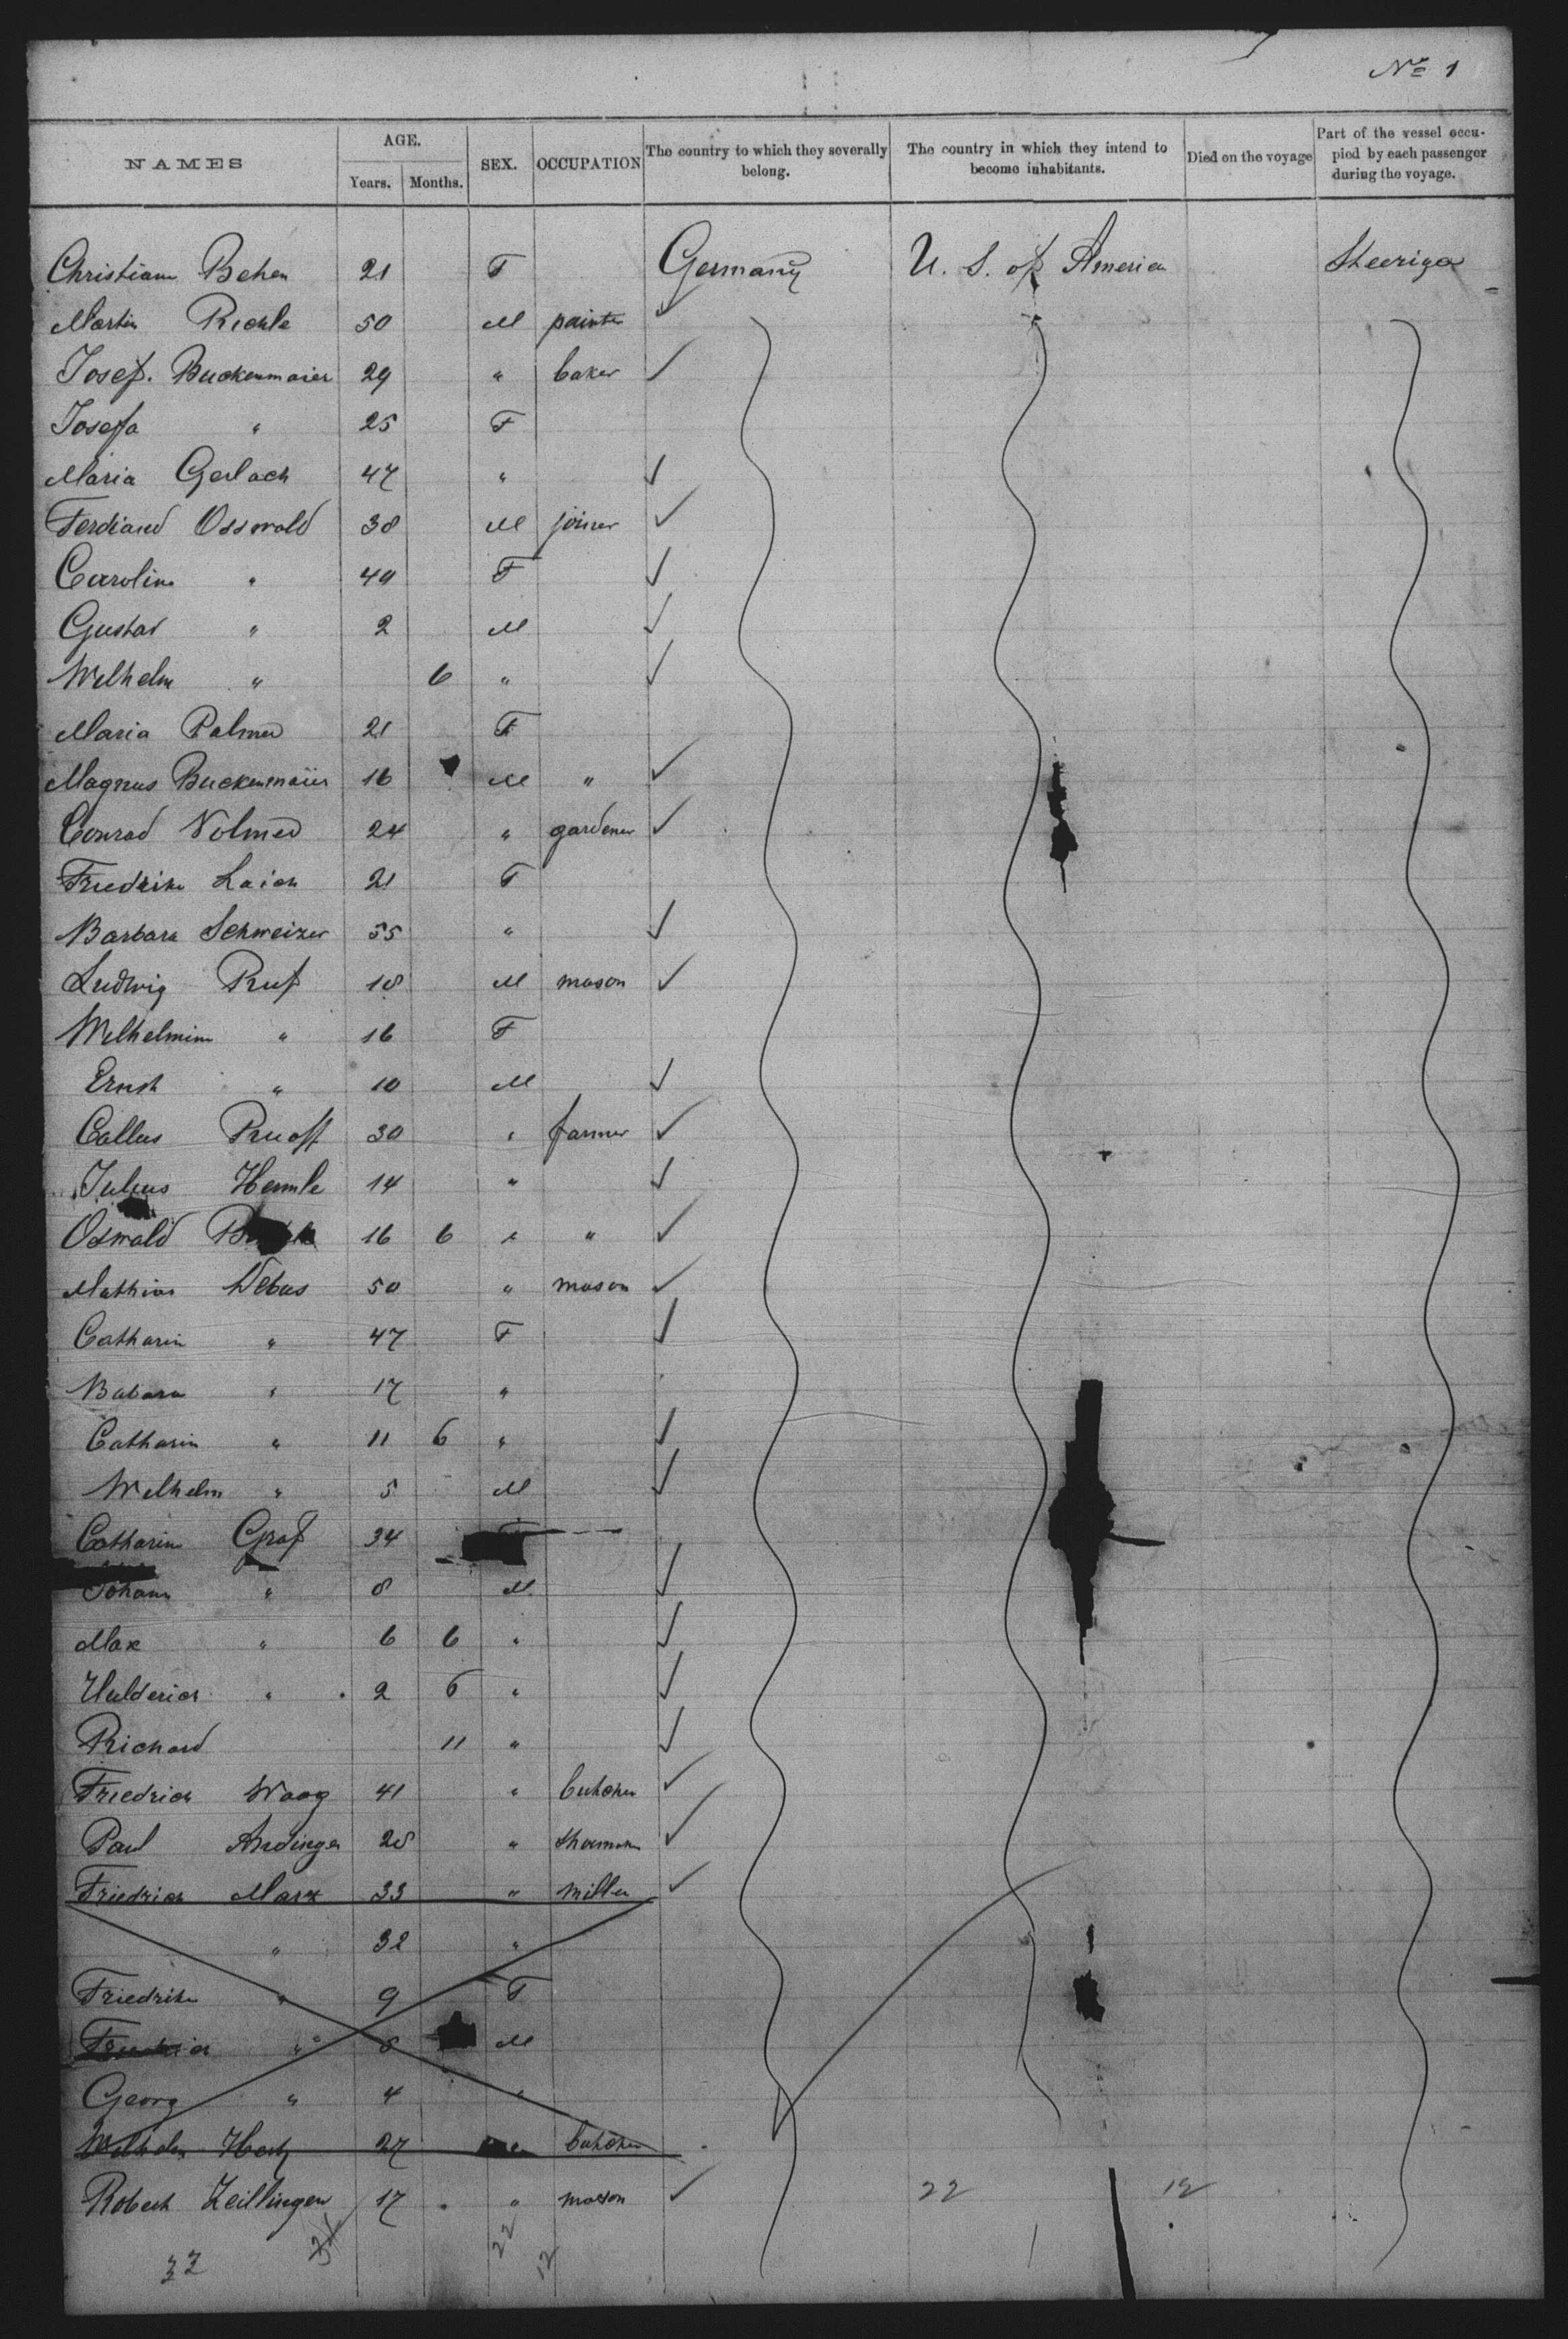 No 1
NAMES AGE. Years. Months. SEX. OCCUPATION The country to which they severally belong. The country in which they intend to become inhabitants. Died on the voyage Part of the vessel occupied by each passenger during the voyage.
Christiane Behen 21 F Germany U. S. of America Steerige
Martin Richle 50 M painter
Josef. Buckenmaier 29 " baker
Josefa " 25 F
Maria Gerlach 47 "
Ferdiand Osswald 38 M joiner
Carolina " 40 F
Gustav " 2 M
Wilhelm " 6 "
Maria Palmer 21 F
Magnus Buckenmaier 16 M "
Conrad Volmer 24 " gardener
Friedrike Laich 21 F
Barbara Schweizer 55 "
Ludwig Ruf 18 M mason
Wilhelmine " 16 F
Ernst " 10 M
Callus Ruoff 30 " farmer
Julius Hermle 14 "
Oswald 16 6 " "
Mathias Debus 50 " mason
Catharin " 47 F
Babara " 17 "
Catharin " 11 6 "
Wilhelm " 5 M
Catharine Graf 34 F
Johann " 8 M
Max " 6 6 "
Hulderich " 2 6 "
Richard 11 "
Friedrich Waag 41 " butcher
Paul Andinger 28 " shoemaker
Friedrich Marx 33 " miller
" 32 "
Friedrike " 9 F
Friedrich " 8 M
Georg " 4 "
Wilhelm 27 butcher
Robert Zeillinger 17 " mason 22 12
32 34 22 12